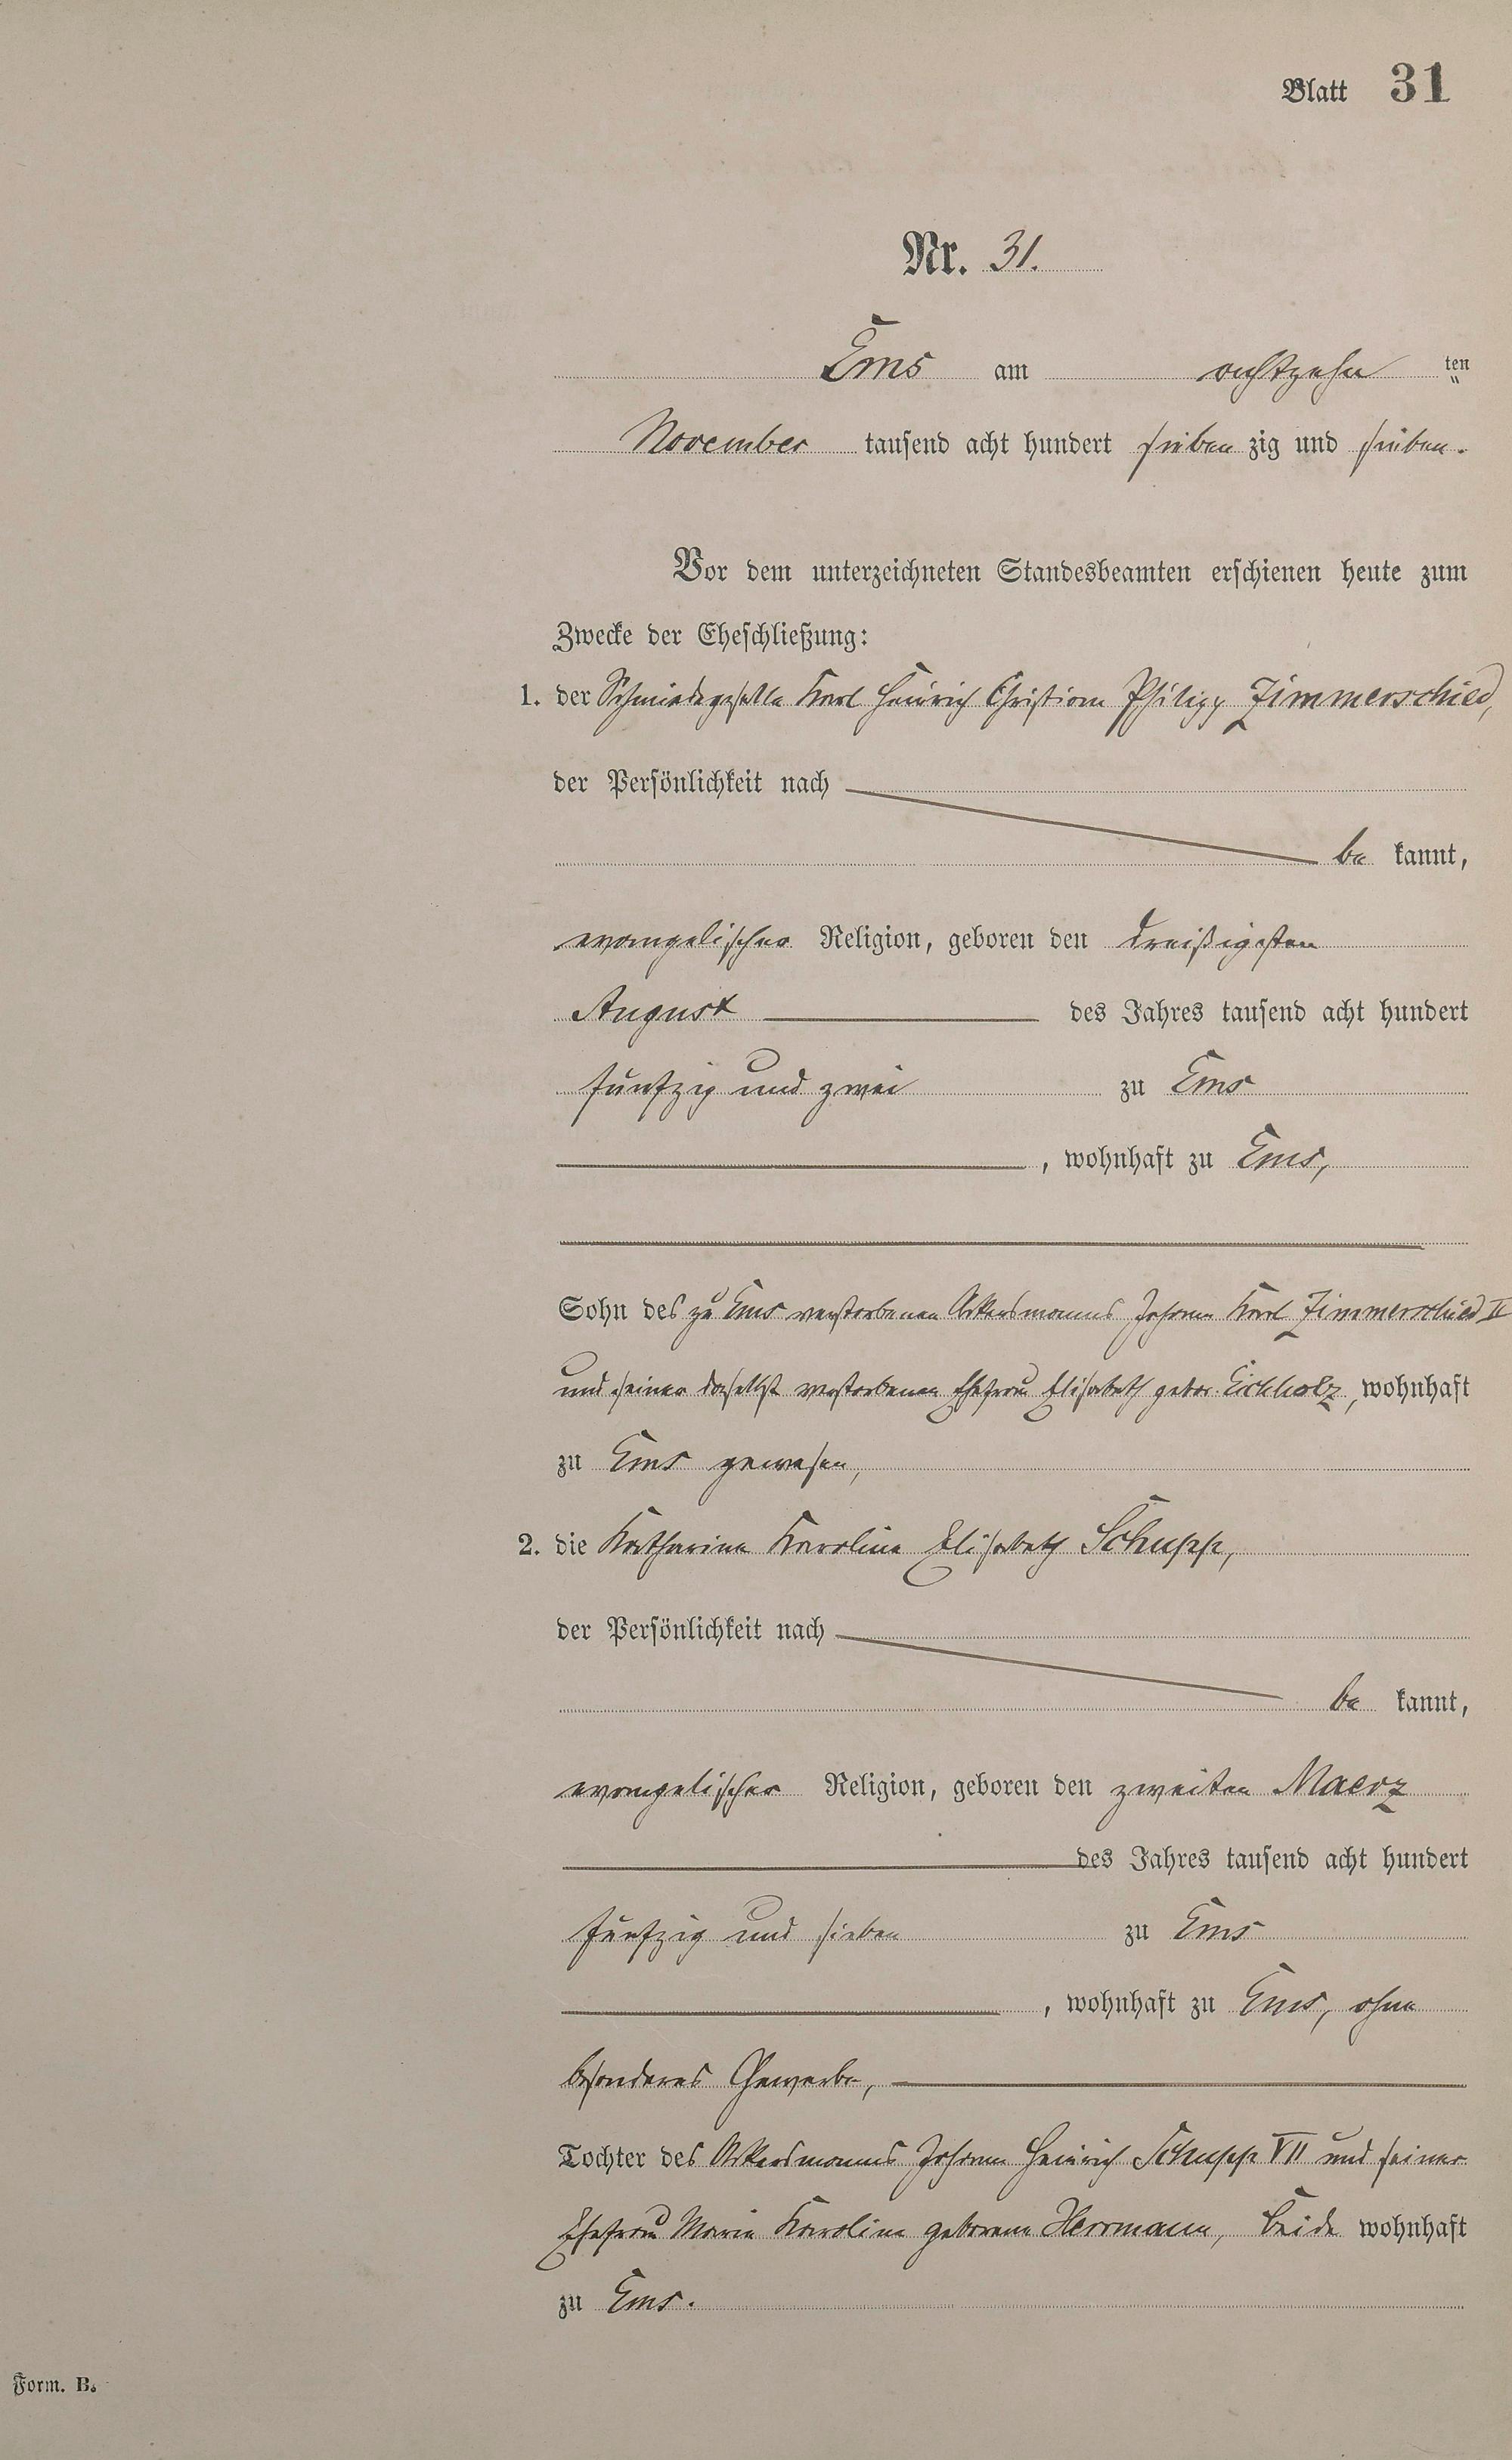 Blatt 31
Nr. 31.
Ems am achtzehn ten
November tausend acht hundert sieben zig und sieben.
Vor dem unterzeichneten Standesbeamten erschienen heute zum
Zwecke der Eheschließung:
1. der Schmiedegeselle Karl Heinrich Christian Philipp Zimmerschied,
der Persönlichkeit nach
be kannt,
evangelischer Religion, geboren den dreißigsten
August des Jahres tausend acht hundert
fünfzig und zwei zu Ems
, wohnhaft zu Ems,
Sohn des zu Ems verstorbenen Ackersmanns Johann Karl Zimmerschied II
und seiner daselbst verstorbenen Ehefrau Elisabeth gebor. Eichholz, wohnhaft
zu Ems gewesen,
2. die Katharina Karoline Elisabeth Schupp,
der Persönlichkeit nach
be kannt,
evangelischer Religion, geboren den zweiten Maerz
des Jahres tausend acht hundert
fünfzig und sieben zu Ems
, wohnhaft zu Ems, ohne
besonderes Gewerbe,
Tochter des Ackersmanns Johann Heinrich Schupp VII und seiner
Ehefrau Maria Karoline geborene Herrmann, beide wohnhaft
zu Ems.
Form. B.